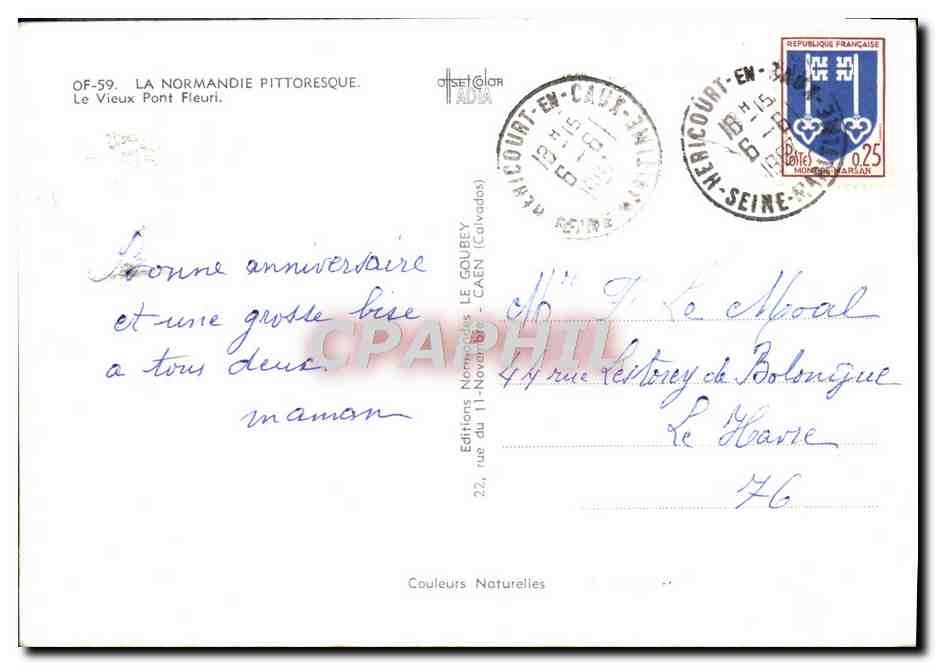 OF-59. LA NORMANDIE PITTORESQUE.
Le Vieux Pont Fleuri.
OFFSET COLOR
ADIA
HERICOURT-EN-CAUX
SEINE MARITIME
18 H 15
6-1
HERICOURT-EN-CAUX
SEINE-MARITIME
18 H 15
6-1
REPUBLIQUE FRANÇAISE
POSTES 0,25
MONT-DE-MARSAN
Bonne anniversaire
et une grosse bise
a tous deux.
maman
Editions Normandes LE GOUBEY
22, rue du 11-Novembre - CAEN (Calvados)
CPAPHIL
Le Moal
44 rue Lestorey de Bolongue
Le Havre
76
Couleurs Naturelles